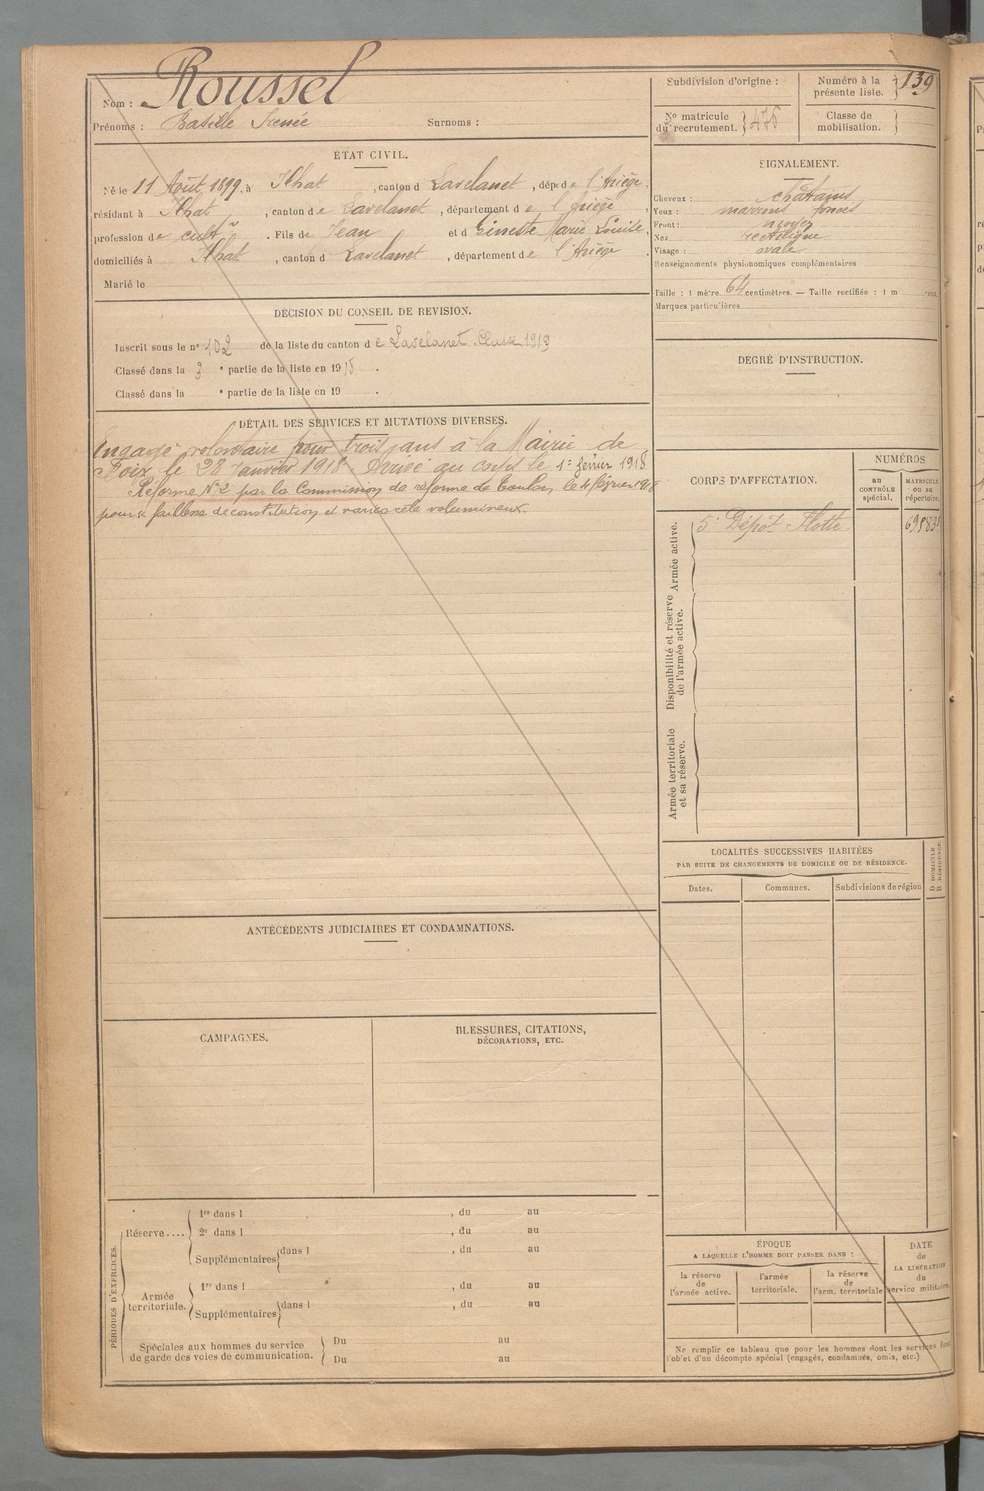 Nom : Roussel
Prénoms : Basile Irenée Surnoms :
ÉTAT CIVIL.
Né le 11 Août 1899, à Ilhat, canton d Lavelanet, dép. de l'Ariège,
résidant à Ilhat, canton de Lavelanet, département de l'Ariège,
profession de cult. Fils de Jean et d Gineste Marie Louise,
domiciliés à Ilhat, canton d Lavelanet, département de l'Ariège.
Marié le
DÉCISION DU CONSEIL DE REVISION.
Inscrit sous le n° 102 de la liste du canton de Lavelanet. Classe 1919
Classé dans la 3 e partie de la liste en 1918.
Classé dans la e partie de la liste en 19 .
DÉTAIL DES SERVICES ET MUTATIONS DIVERSES.
Engagé volontaire pour trois ans à la Mairie de
Foix, le 28 Janvier 1918. Arrivé au corps le 1er février 1918
Réformé N°2 par la Commission de réforme de Toulon le 4 février 1918
pour faiblesse de constitution et varicocèle volumineux.
ANTÉCÉDENTS JUDICIAIRES ET CONDAMNATIONS.
CAMPAGNES.
BLESSURES, CITATIONS,
DÉCORATIONS, ETC.
PÉRIODES D'EXERCICES.
Réserve....
1re dans l , du au
2e dans l , du au
Supplémentaires dans l , du au
Armée territoriale.
1re dans l , du au
Supplémentaires dans l , du au
Spéciales aux hommes du service
de garde des voies de communication.
Du au
Du au
Subdivision d'origine :
Numéro à la présente liste. 139
N° matricule du recrutement. 476
Classe de mobilisation.
SIGNALEMENT.
Cheveux : châtains
Yeux : marrons foncés
Front : moyen
Nez rectiligne
Visage : ovale
Renseignements physionomiques complémentaires
Taille : 1 mètre 64 centimètres. — Taille rectifiée : 1 m cent.
Marques particulières
DEGRÉ D'INSTRUCTION.
CORPS D'AFFECTATION.
NUMÉROS
au CONTRÔLE spécial.
MATRICULE ou au répertoire.
Armée active.
5e Dépôt Flotte
Disponibilité et réserve de l'armée active.
Armée territoriale et sa réserve.
LOCALITÉS SUCCESSIVES HABITÉES
PAR SUITE DE CHANGEMENTS DE DOMICILE OU DE RÉSIDENCE.
Dates. Communes. Subdivisions de région
D DOMICILE
R RÉSIDENCE.
ÉPOQUE
A LAQUELLE L'HOMME DOIT PASSER DANS :
la réserve de l'armée active.
l'armée territoriale.
la réserve de l'arm. territoriale
DATE de LA LIBÉRATION du service militaire.
Ne remplir ce tableau que pour les hommes dont les services font
l'objet d'un décompte spécial (engagés, condamnés, omis, etc.)